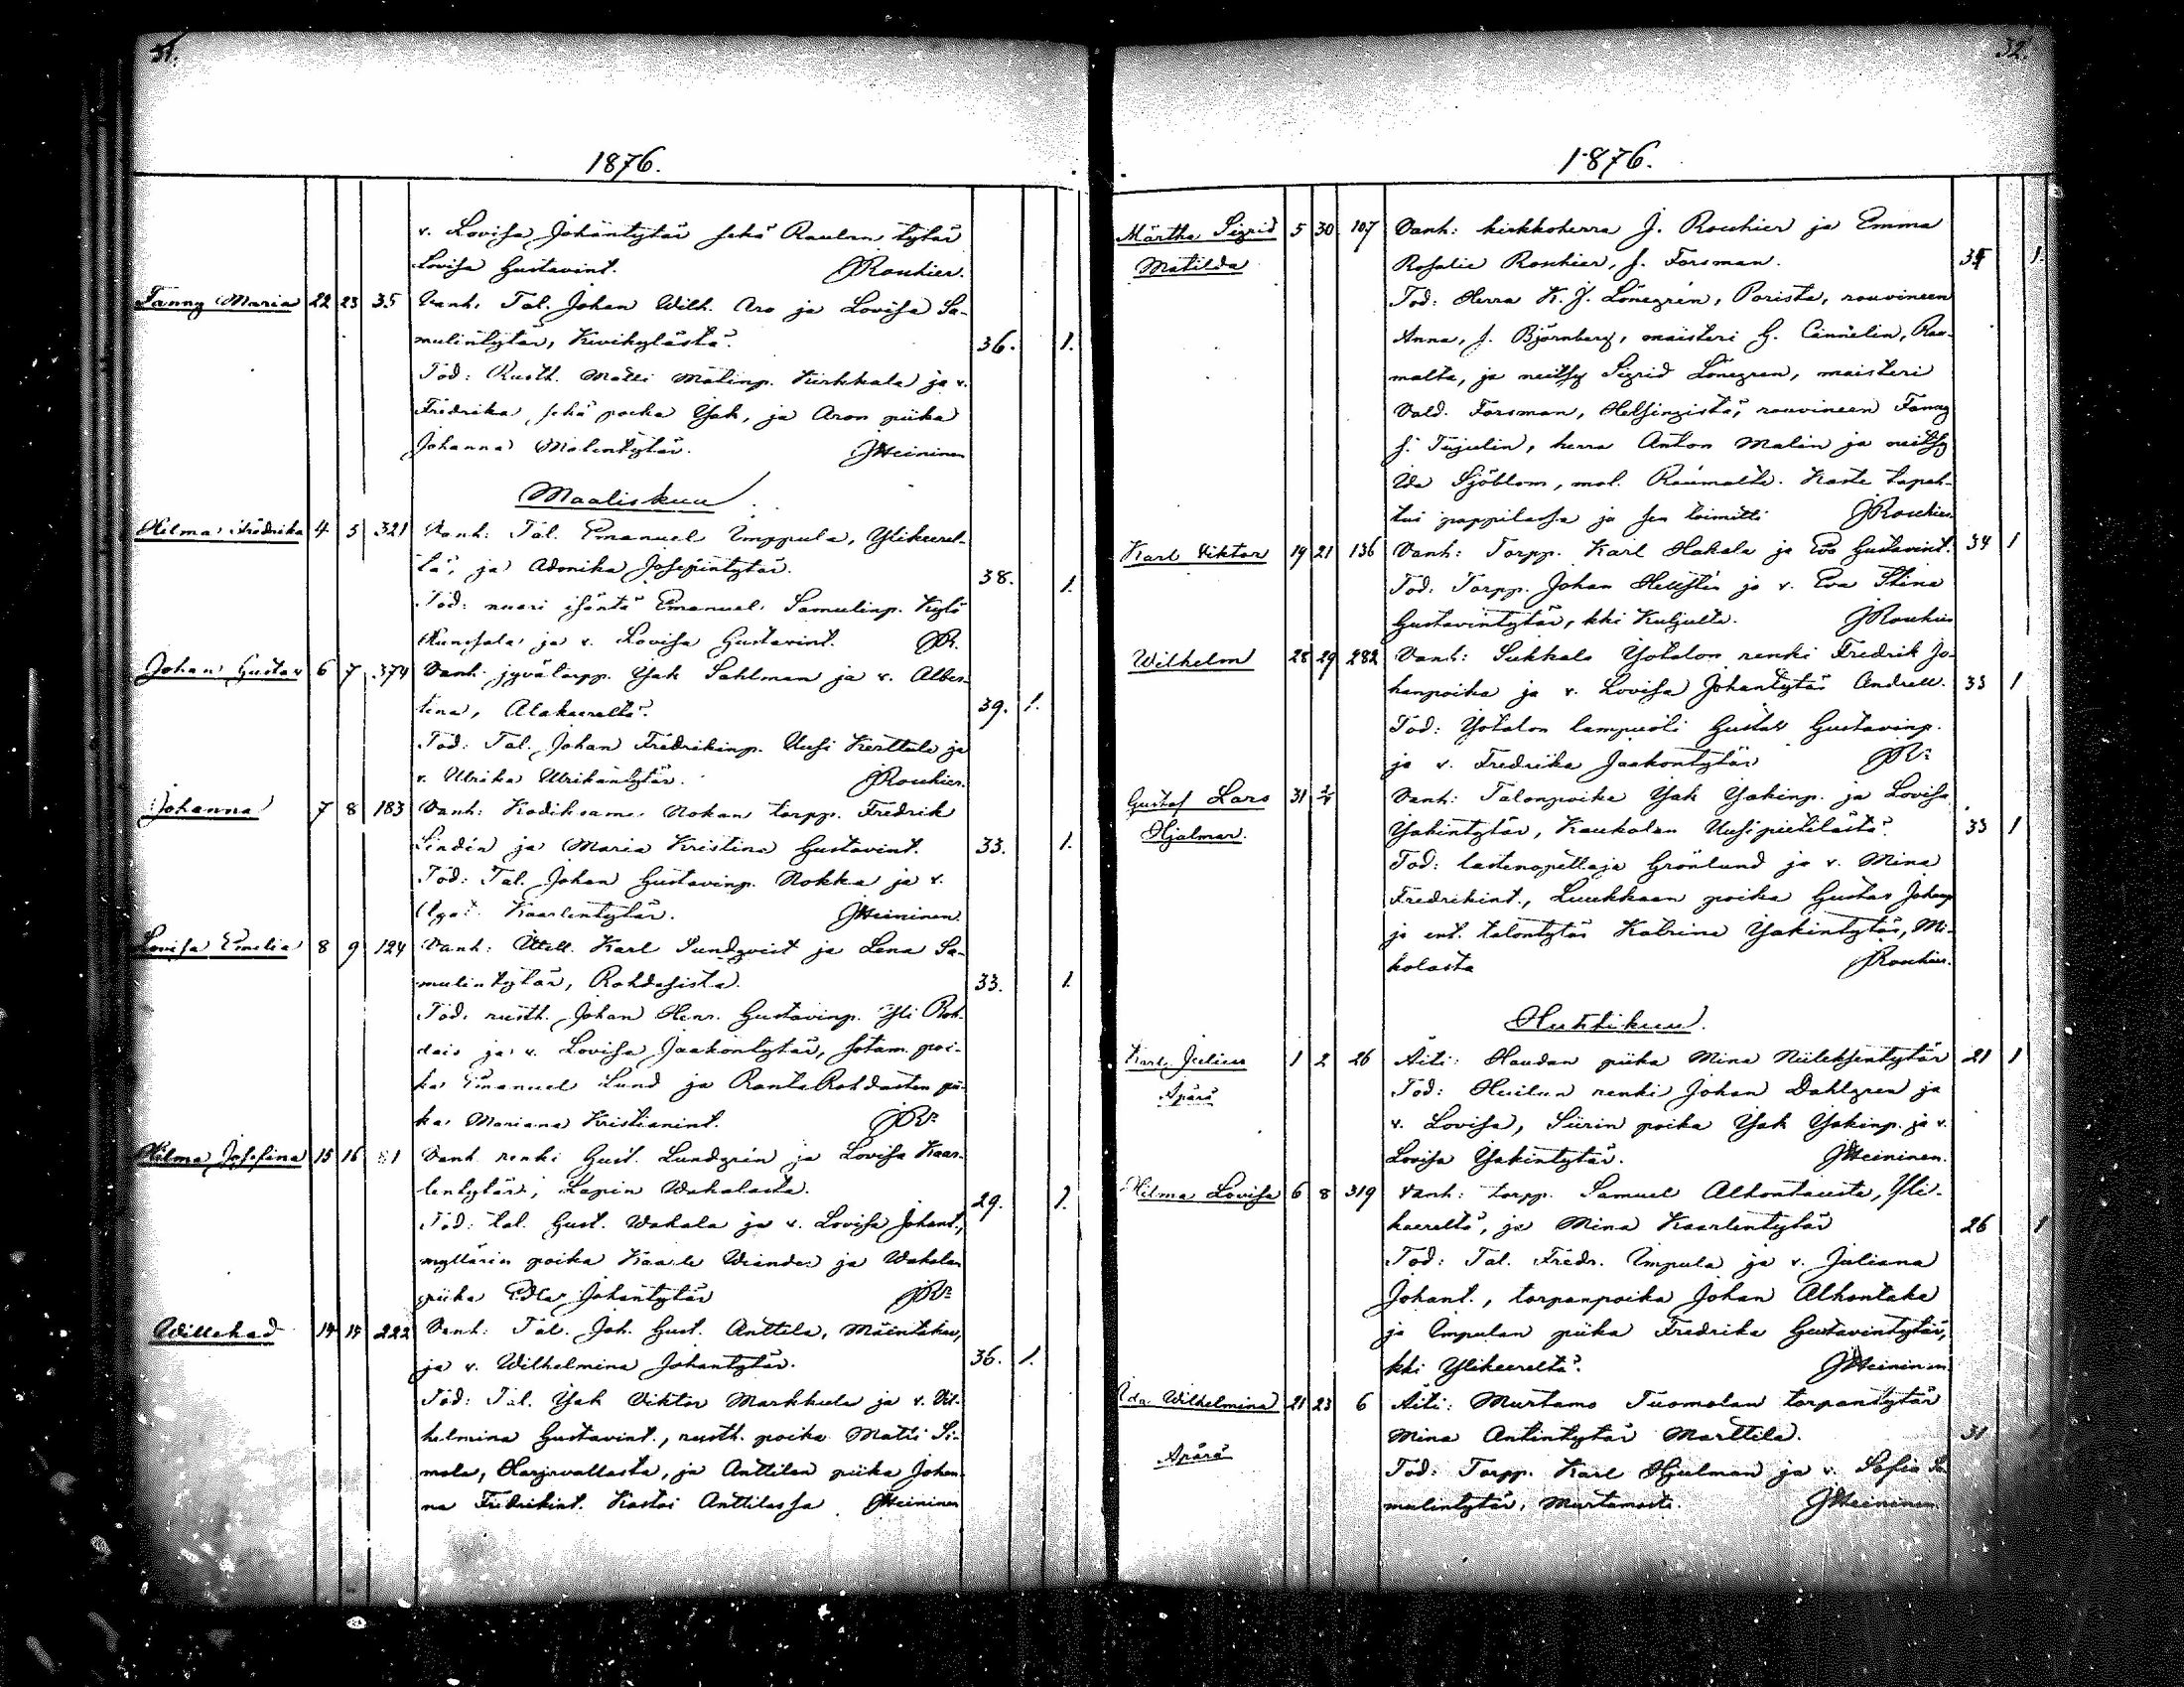 31.
1876.
v. Lovisa Johantytär sekä Raulan tytär
Lovisa Gustavint. JRoschier.
Fanny Maria 22 23 35 Vanh: Tal. Johan Wilh. Aro ja Lovisa Sa-
mulintytär, Kivikylästä. 36. 1.
Tod: Rusth. Matti Matinp. Kirkkala ja v.
Fredrika, sekä poika Isak, ja Aron piika
Johanna Matintytär. JHeininen
Maaliskuu
Hilma Fredrika 4 5 321 Vanh: Tal. Emanuel Imppula, Ylikierel-
tä, ja Adonika Josefintytär. 38. 1.
Tod: nuori isäntä Emanuel Samulinp. Kylä
ja v. Lovisa Gustavint. JR.
Johan Gustav 6 7 374 Vanh: jyvätorpp. Isak Sahlman ja v. Alber-
tina, Alakeereltä. 39. 1.
Tod: Tal. Johan Fredrikinp. Uusi Kerttula ja
v. Ulrika Ulrikantytär. JRoschier.
Johanna 7 8 183 Vanh: Kodiksam. Nokan torpp. Fredrik
Lindén ja Maria Kristina Gustavint. 33. 1.
Tod: Tal. Johan Gustavinp. Nokka ja v.
Kaarlentytär. JHeininen
Lovisa Emelia 8 9 124 Vanh: Ittell. Karl Sundqvist ja Lena Sa-
mulintytär, Rohdasista. 33. 1.
Tod: rusth. Johan Henr. Gustavinp. Yli Roh-
dais ja v. Lovisa Jaakontytär, sotam. poi-
ka Emanuel Lund ja RantaRohdasten pii-
ka Mariana Kristianint. JRr
Hilma Josefina 15 16 81 Vanh. renki Gust. Lundgrén ja Lovisa Kaar-
lentytär, Lapin Wahalasta. 29. 1.
Tod: tal. Gust. Wahala ja v. Lovisa Johant.,
myllärin poika Kaarle Wiander ja Wahalan
piika Edla Johantytär JRr
Willehad 14 15 222 Vanh: Tal. Joh. Gust. Anttila,
ja v. Wilhelmina Johantytär. 36. 1.
Tod: Tal. Isak Viktor Markkula ja v. Vil-
helmina Gustavint., rusth. poika Matti Si-
mola, Harjavallasta, ja Anttilan piika Johan-
na Fredrikint. Kastoi Anttilassa JHeininen
32.
1876.
Märtha Sigrid 5 30 107 Vanh: kirkkoherra J. Roschier ja Emma
Matilda Rosalie Roschier, s. Forsman. 34 1.
Tod: Herra K. J. Lönegrén, Porista, rouvineen
Anna, s. Björnberg, maisteri G. Cannelin, Rau-
malta, ja neitsy Sigrid Lönegren, maisteri
Vald. Forsman, Helsingistä, rouvineen Fanny
s. herra Anton Malin ja neitsy
Ida Sjöblom, mol. Raumalta. Kaste tapah-
tui pappilassa ja sen toimitti JRoschier
Karl Viktor 19 21 136 Vanh: Torpp. Karl Hakala ja Eva Gustavint. 34 1
Tod: Torpp. Johan Hellstén ja v. Eva Stina
Gustavintytär, kki Kuljulta. JRoschier
Wilhelm 28 29 282 Vanh: Sukkala Isotalon renki Fredrik Jo-
hanpoika ja v. Lovisa Johantytär Andrell. 33 1
Tod: Isotalon lampuoti Gustav Gustavinp.
ja v. Fredrika Jaakontytär JRr
Gustaf Lars 31 2/4 Vanh: Talonpoika Isak Isakinp. ja Lovisa
Hjalmar. Isakintytär, Kaukolan Uusipietilästä. 33 1
Tod: lastenopettaja Grönlund ja v. Mina
Fredrikint., Luukkaan poika Gustav Johanp
ja ent. talontytär Katrina Isakintytär, Mi-
kolasta JRoschier.
Huhtikuu.
Karl Julius 1 2 26 Äiti: Haudan piika Mina Niileksentytär 21 1
Äpärä Tod: Huilun renki Johan Dahlgren ja
v. Lovisa, Siirin poika Isak Isakinp. ja v.
Lovisa Isakintytär. JHeininen.
Hilma Lovisa 6 8 319 Vanh: torpp. Samuel Alhontausta, Yli-
keereltä, ja Mina Kaarlentytär 26 1
Tod: Tal. Fredr. Impula ja v. Juliana
Johant., torpanpoika Johan Alhontaka
ja Impulan piika Fredrika Gustavintytär,
kki Ylikeereltä. JHeininen
Ida Wilhelmina 21 23 6 Äiti: Murtamo Tuomolan torpantytär
Mina Antintytär Marttila. 31 1
Äpärä Tod: Torpp. Karl Hjulman ja v. Sofia Sa-
mulintytär, Murtamosta. JHeininen